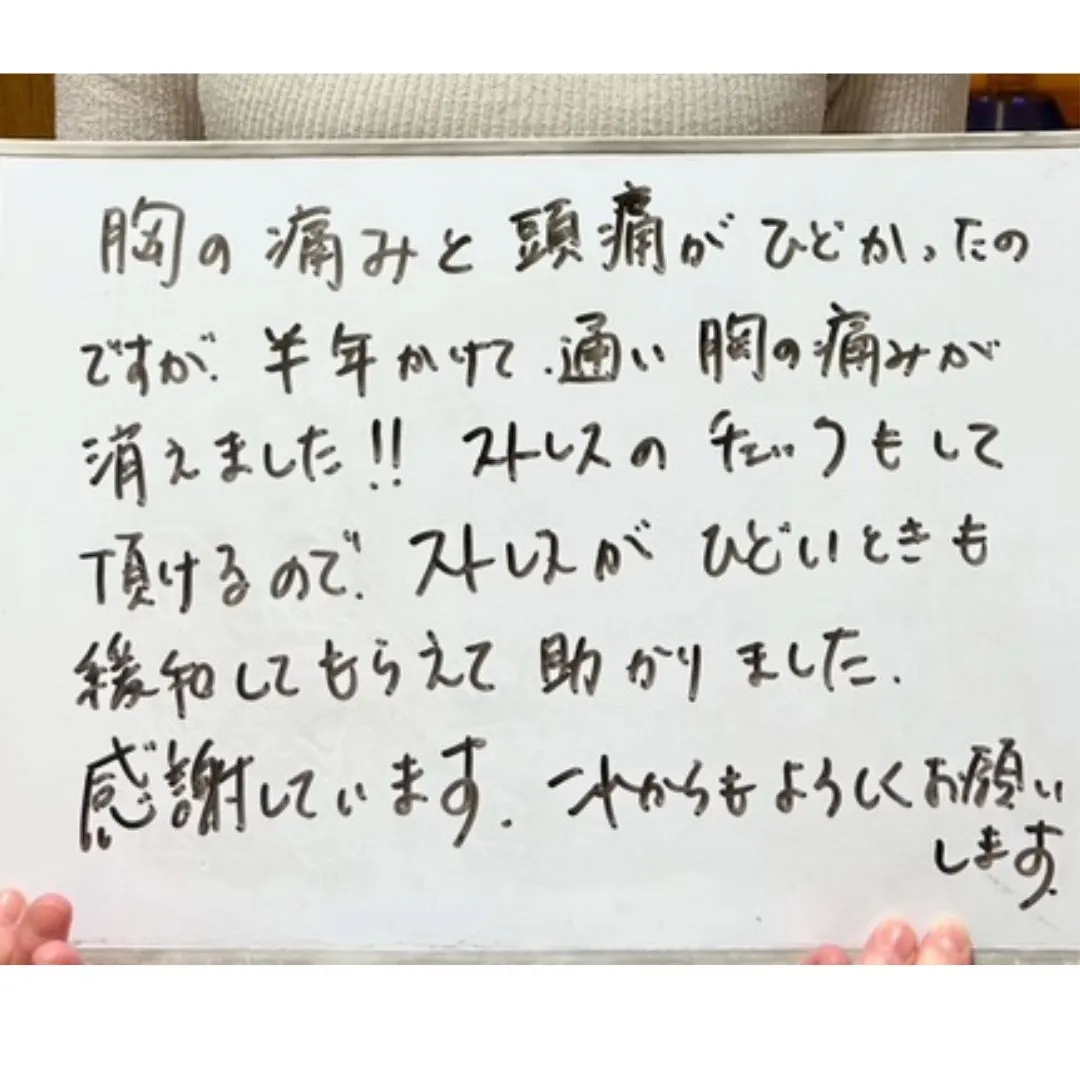 胸の痛みと頭痛がひどかったの
ですが、半年かけて、通い胸の痛みが
消えました!! ストレスのチェックもして
頂けるので、ストレスがひどいときも
緩和してもらえて助かりました。
感謝しています。これからもよろしくお願い
します。